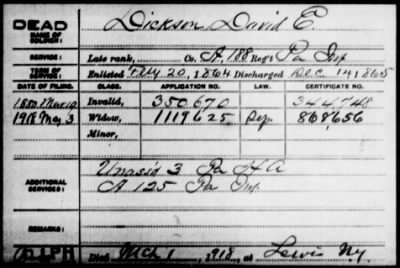 DEAD
NAME OF SOLDIER:
Dickson, David E.
SERVICE:
Late rank, Co. A, 188 Reg't Pa Inf
TERM OF SERVICE:
Enlisted Feby 20, 1864 Discharged Dec. 14 1865
DATE OF FILING. CLASS. APPLICATION NO. LAW. CERTIFICATE NO.
1880 Mar 19 Invalid, 350670 344,748
1918 May 3 Widow, 1119625 Sep 868656
Minor,
ADDITIONAL SERVICES:
Unas'd 3 Pa H A
A. 125 Pa Inf.
REMARKS:
Died Mch 1, 1918, at Lewis Ny.